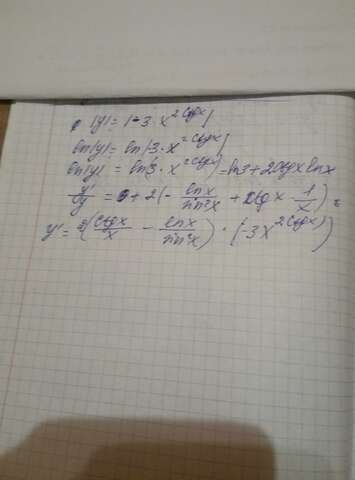 |y| = |-3 · x^{2ctgx}|
ln|y| = ln|3 · x^{2ctgx}|
ln|y| = ln(3 · x^{2ctgx}) = ln3 + 2ctgx lnx
y'/y = 0 + 2(- lnx/sin²x + ctgx · 1/x) =
y' = 2(ctgx/x - lnx/sin²x) · (-3x^{2ctgx})